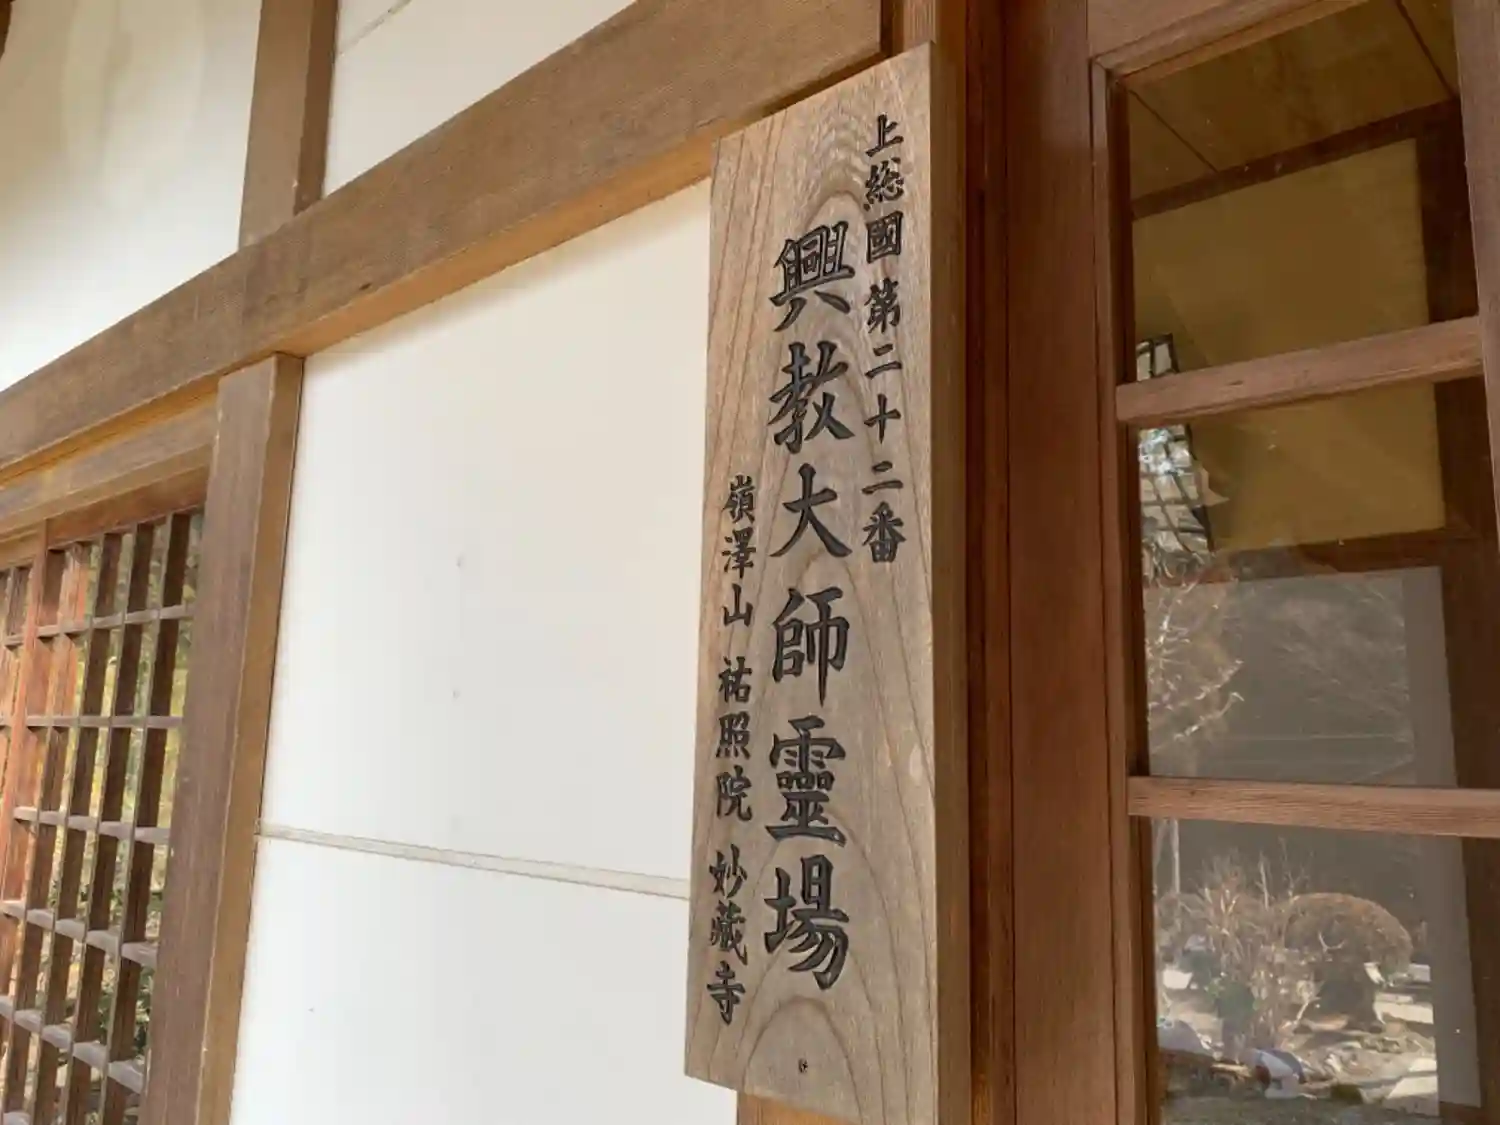 上総國第二十二番
興教大師靈場
嶺澤山 祐照院 妙藏寺